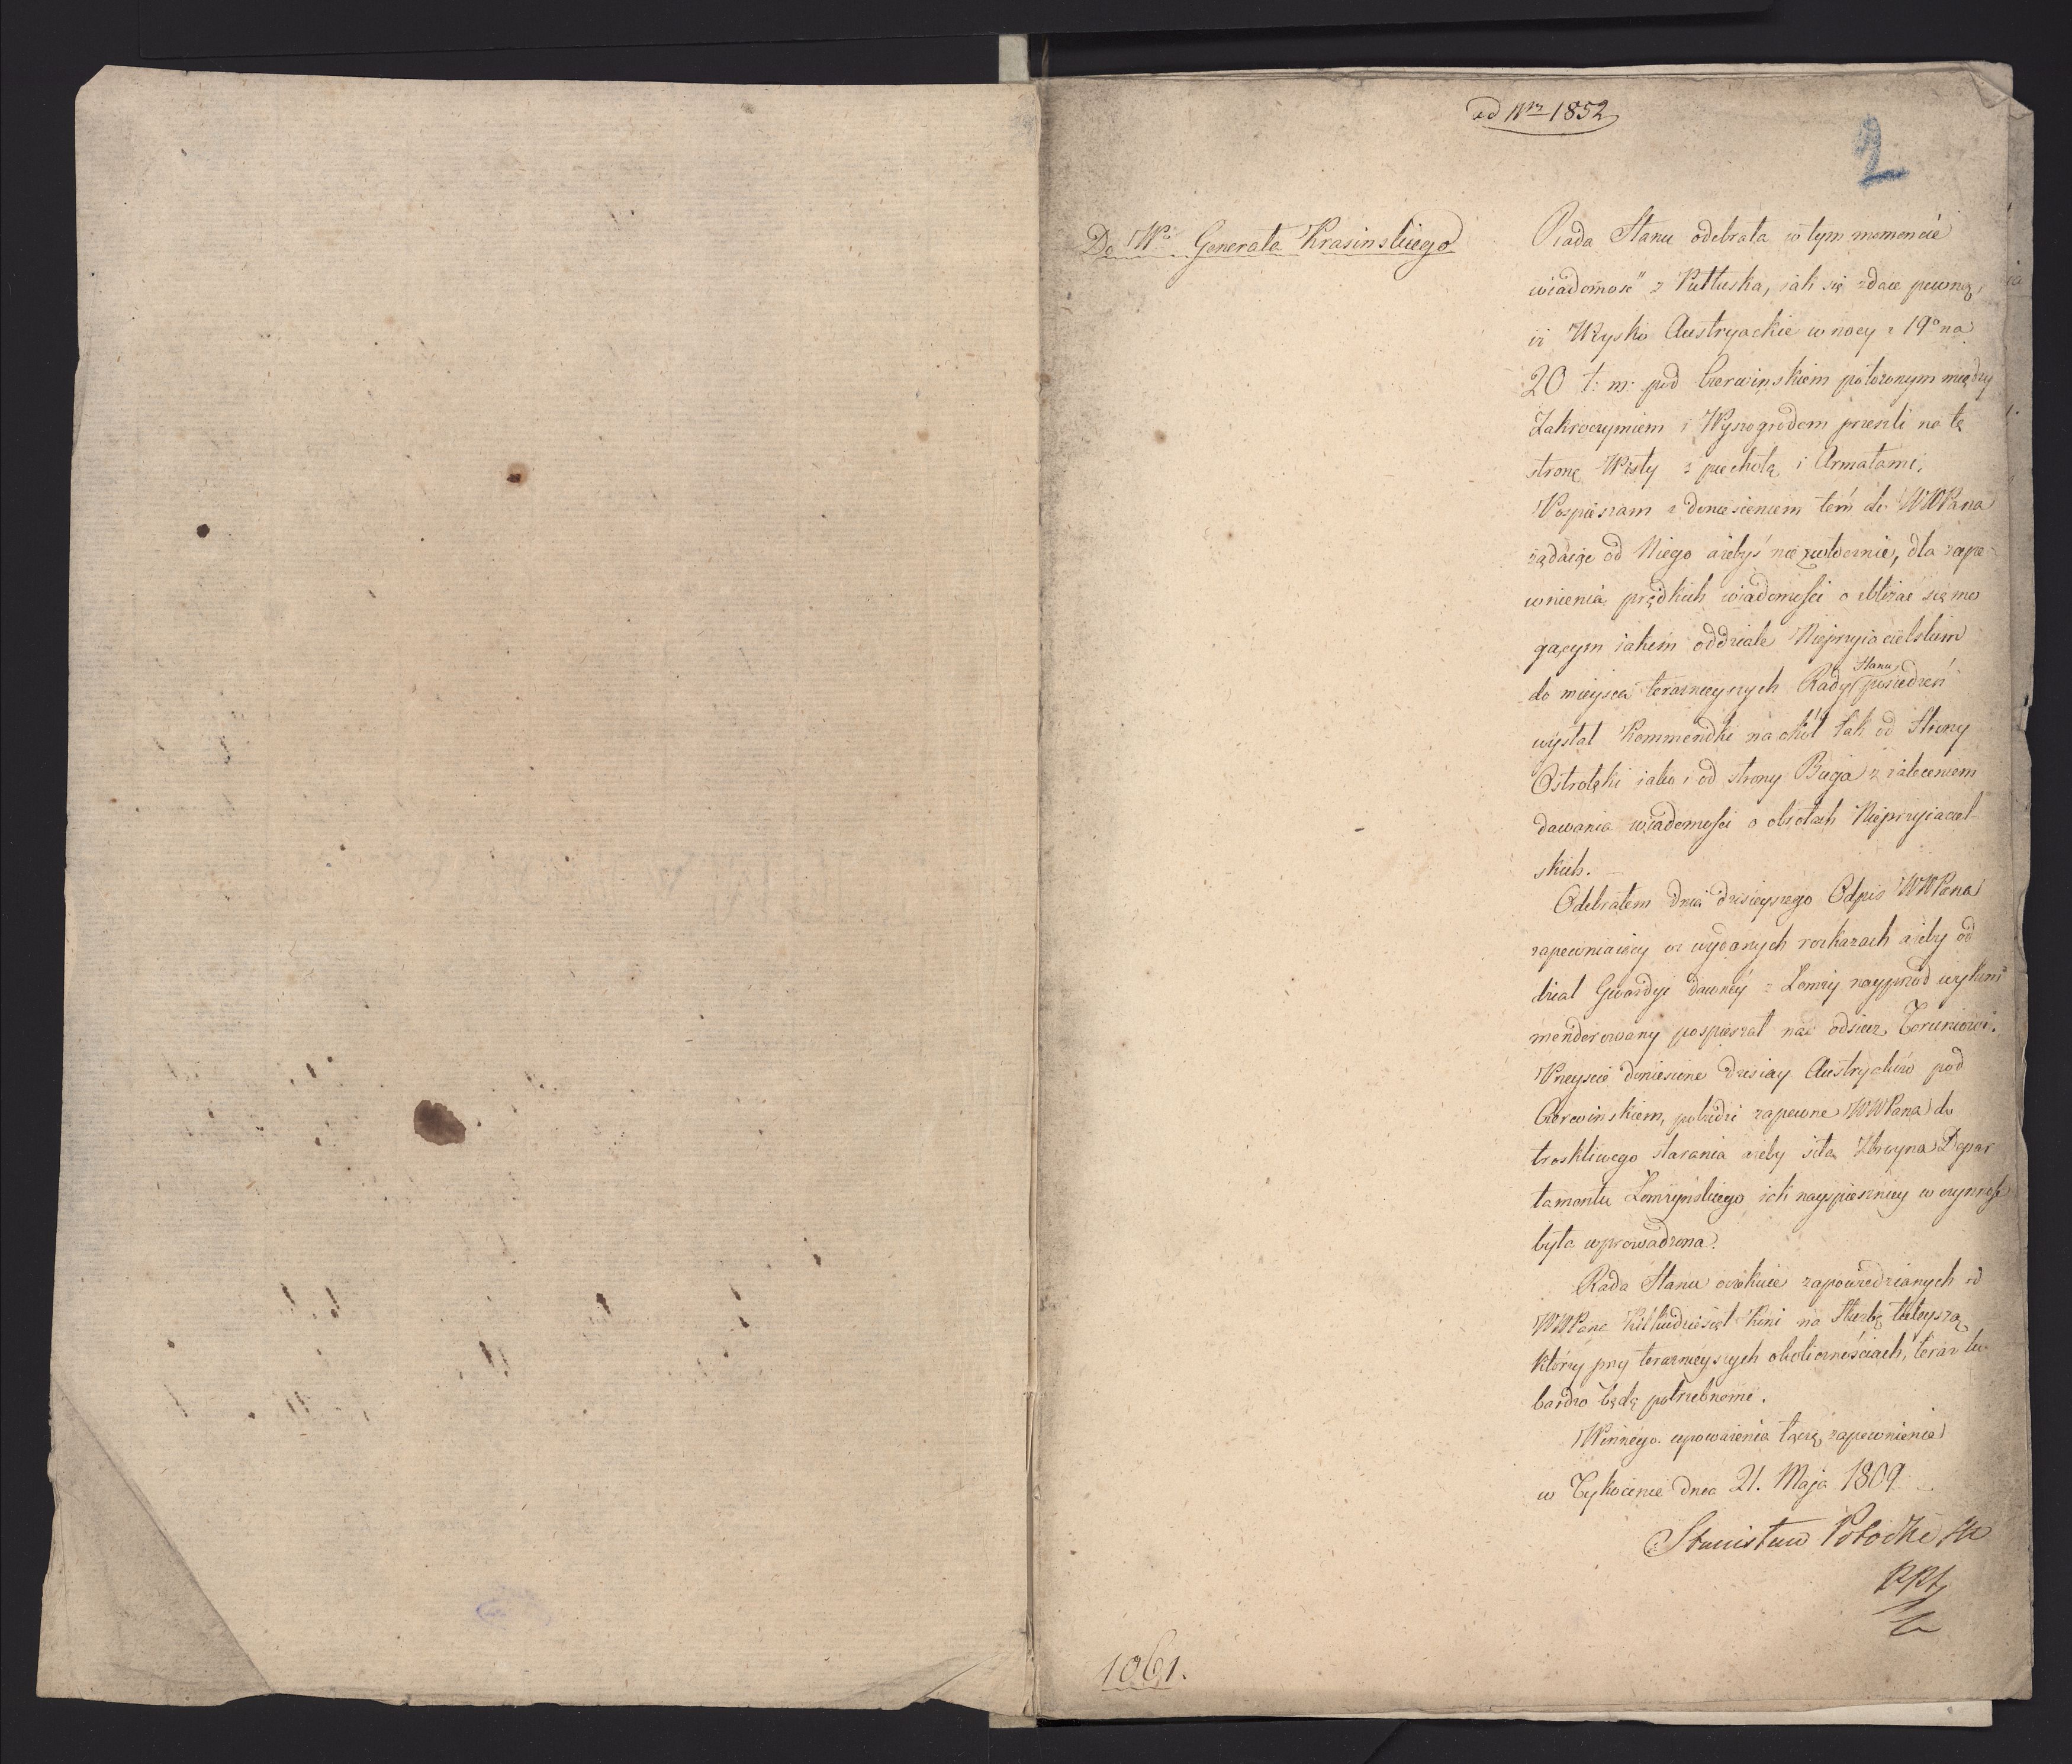 ad Nrm 1852
2
Do W. Generała Krasinskiego
Rada Stanu odebrała w tym momencie
wiadomość z Pułtuska, iak się zdaie pewną,
iż Woysko Austryackie w nocy z 19o na
20 t: m: pod Czerwinskiem położonym między
Zakroczymiem i Wyszogrodem przeszli na tę
stronę Wisły z piechotą i Armatami.
Pospieszam z doniesieniem tém do WWPana
żądaiąc od Niego ażebyś niezwłocznie, dla zape-
wnienia prędkich wiadomości o zbliżać się mo
gącym iakim oddziale Nieprzyiacielskim
do mieysca teraznieyszych Rady Stanu posiedzeń
wysłał Kommendki na okół tak od strony
Ostrołęki iako i od strony Buga z zaleceniem
dawania wiadomości o obrotach Nieprzyiaciel-
skich.
Odebrałem dnia dzisieyszego Odpis WWPana
zapewniaiący o wydanych rozkazach ażeby od
dział Gwardyi dawney z Łomży nayprzod wykom
menderowany pospieszał na odsiecz Toruniowi.
Przeyscie doniesione dzisiay Austryaków pod
Czerwinskiem, pobudzi zapewne WWPana do
troskliwego starania ażeby siła zbroyna Depar
tamentu Łomżyńskiego iak nayspieszniey w czynność
była wprowadzona.
Rada Stanu oczekuie zapowiedzianych od
WWPana kilkudziesiąt koni na służbę tuteyszą,
którzy przy teraznieyszych okolicznościach, teraz tu
bardzo będą potrzebnemi.
Winnego upoważenia łączę zapewnienie
w Tykocinie dnia 21. Maja 1809
Stanisław Potocki
1061.